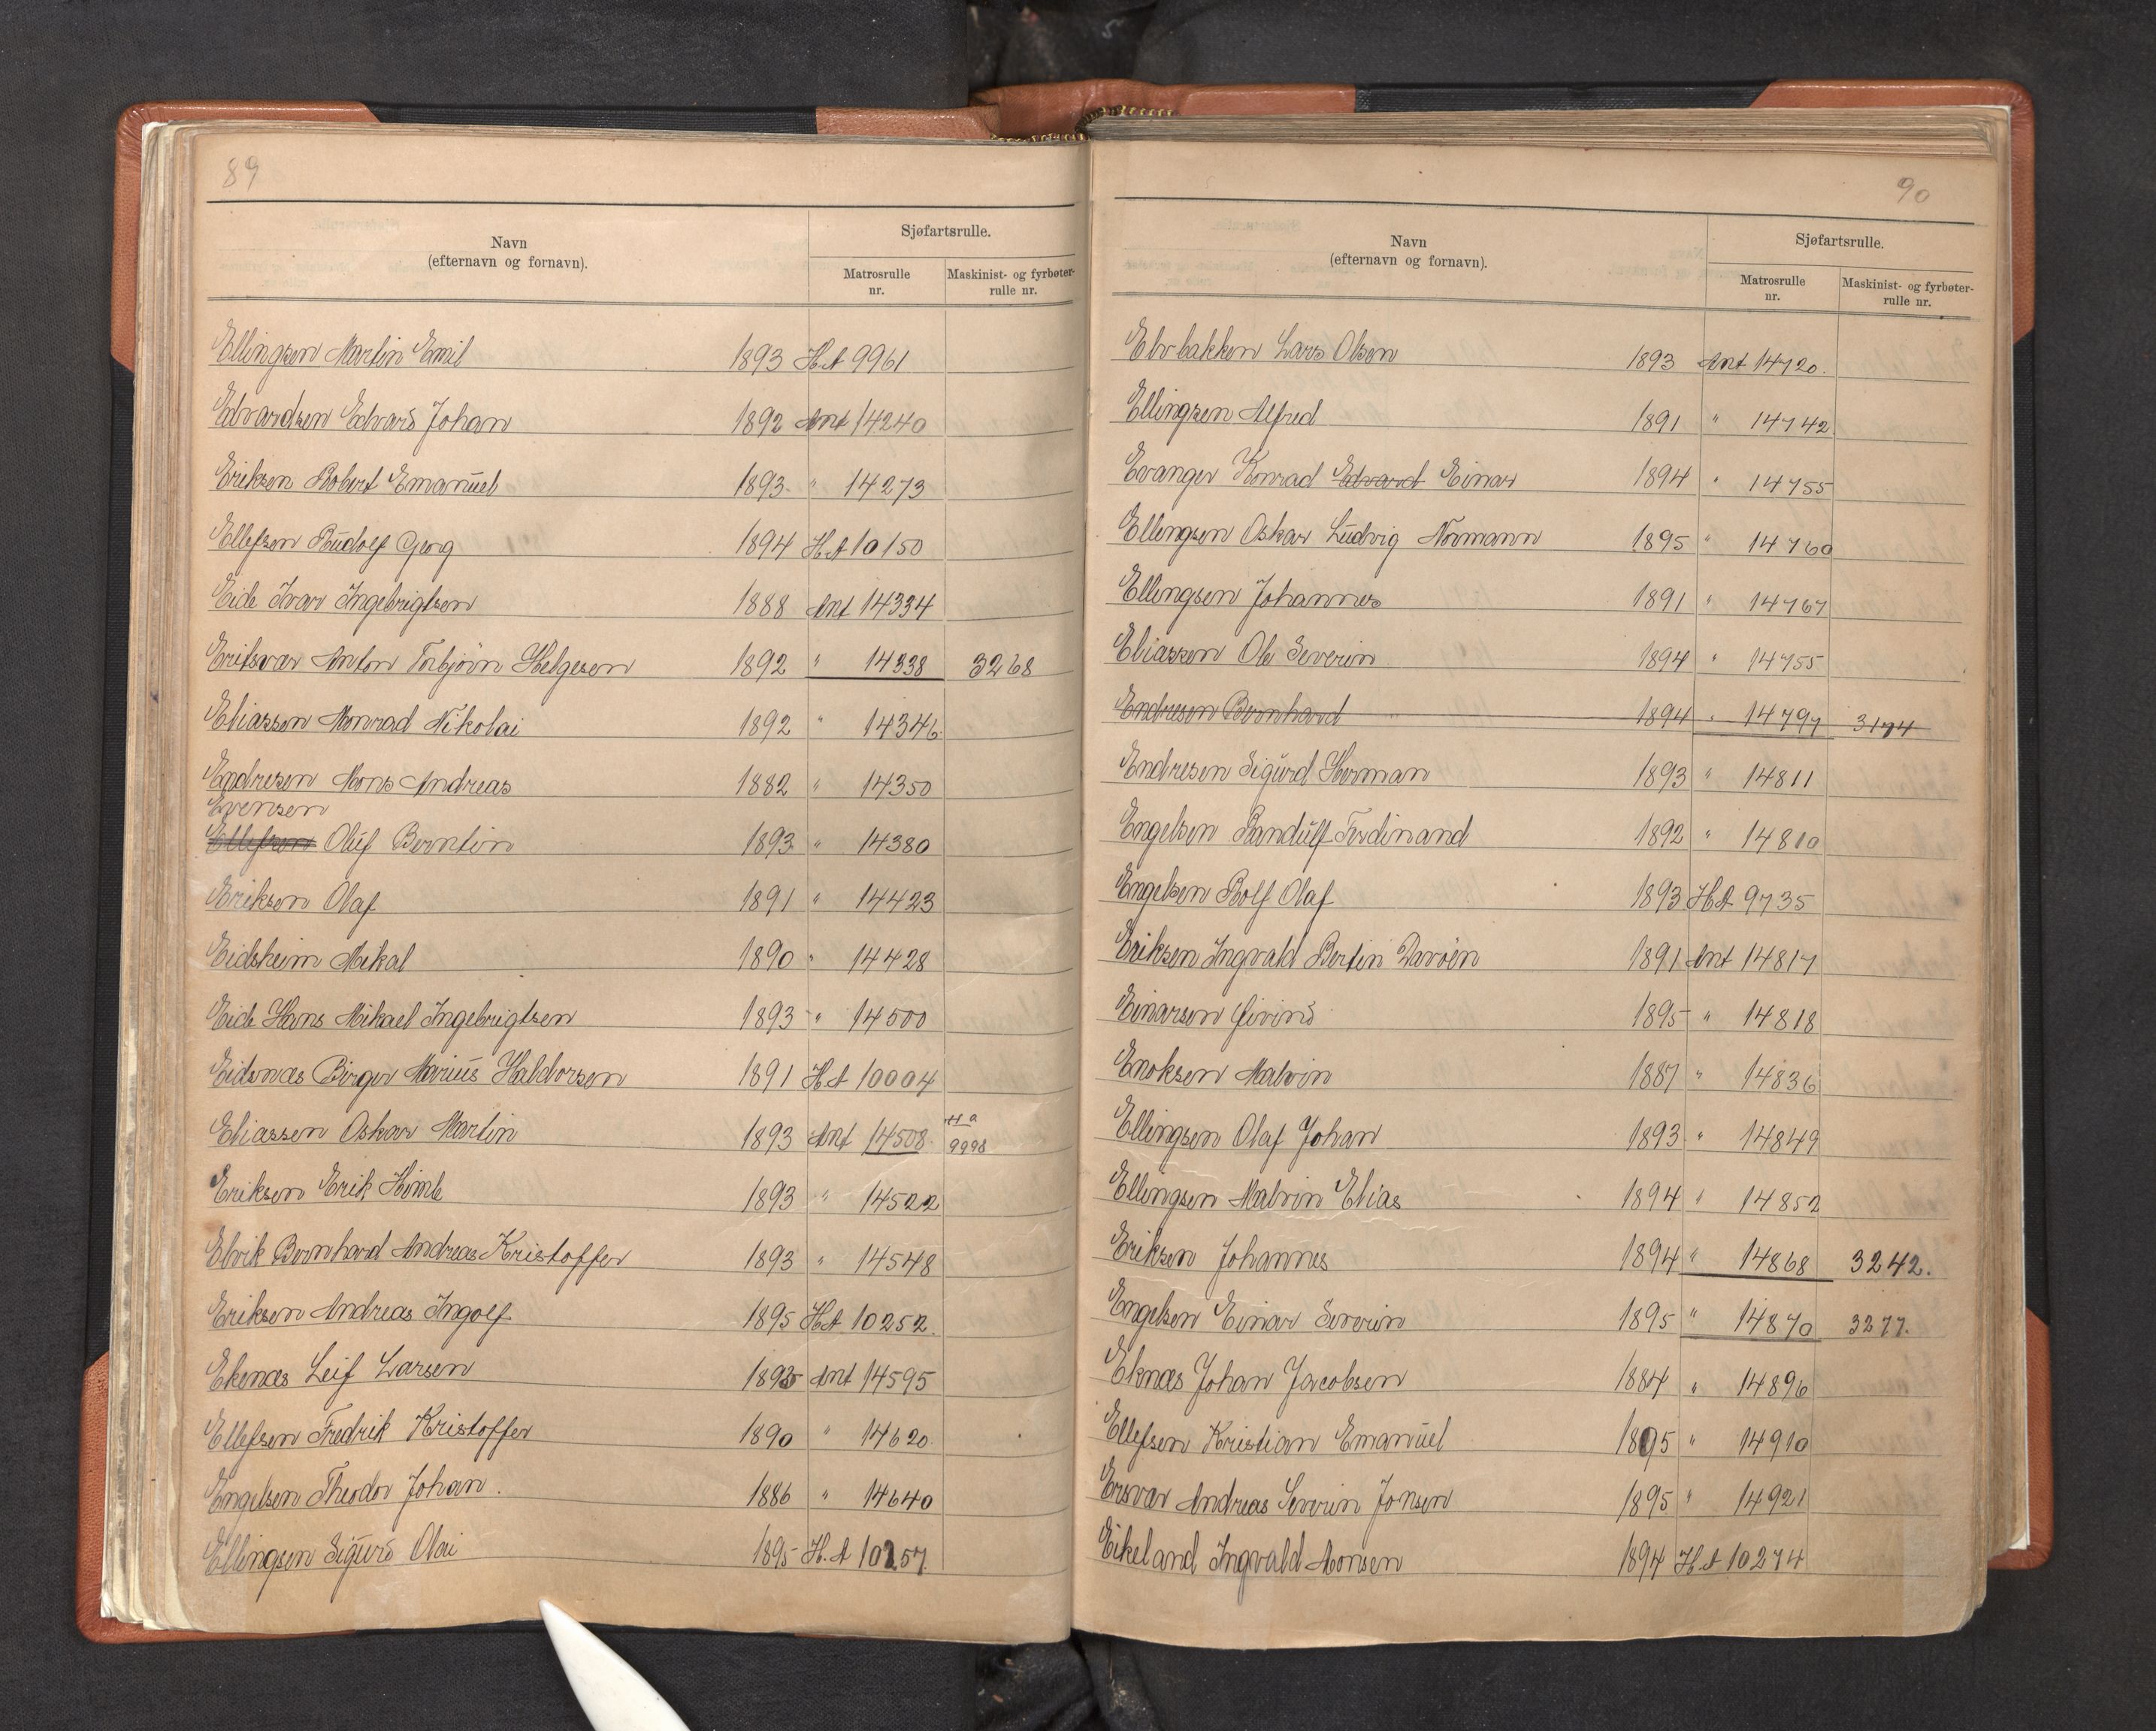 89
Navn
(efternavn og fornavn).
Sjøfartsrulle.
Matrosrulle
nr.
Maskinist- og fyrbøter-
rulle nr.
Ellingsen Martin Emil 1893 H.A 9961
Edvardsen Edvard Johan 1892 Ant 14240
Eriksen Robert Emanuel 1893 " 14273
Ellefsen Rudolf Georg 1894 H.A 10150
Eide Ivar Ingebrigtsen 1888 Ant 14334
Eritsvær Anton Torbjörn Helgesen 1892 " 14338 3268
Eliassen Monrad Nikolai 1892 " 14346
Endresen Mons Andreas 1882 " 14350
Evensen
Ellefsen Oluf Berntin 1893 " 14380
Eriksen Olaf 1891 " 14423
Eidsheim Mikal 1890 " 14428
Eide Hans Mikael Ingebrigtsen 1893 " 14500
Eidsnæs Birger Marius Haldorsen 1891 H.A 10004
Eliassen Oskar Martin 1893 Ant 14508 Ha 9998
Eriksen Erik Himle 1893 " 14522
Elvik Bernhard Andreas Kristoffer 1893 " 14548
Eriksen Andreas Ingolf 1895 H.A 10252.
Ekenæs Leif Larsen 1895 Ant 14595
Ellefsen Fredrik Kristoffer 1890 " 14620
Engelsen Theodor Johan. 1886 " 14640
Ellingsen Sigurd Olai 1895 H.A 10257.
90
Navn
(efternavn og fornavn).
Sjøfartsrulle.
Matrosrulle
nr.
Maskinist- og fyrbøter-
rulle nr.
Elvebakken Lars Olsen 1893 Ant 14720.
Ellingsen Alfred 1891 " 14742
Evanger Konrad Edvard Einar 1894 " 14755
Ellingsen Oskar Ludvig Normann 1895 " 14760
Ellingsen Johannes 1891 " 14767
Eliassen Ole Severin 1894 " 14755
Endresen Bernhard 1894 " 14797 3174
Endresen Sigurd Herman 1893 " 14811
Engelsen Randulf Ferdinand 1892 " 14810
Engelsen Rolf Olaf 1893 H.A 9735
Eriksen Ingvald Bertin Davöen 1891 Ant 14817
Einarsen Øivind 1895 " 14818
Enoksen Malvin 1887 " 14836
Ellingsen Olaf Johan 1893 " 14849
Ellingsen Malvin Elias 1894 " 14852
Eriksen Johannes 1894 " 14868 3242.
Engelsen Einar Severin 1895 " 14870 3277.
Eknæs Johan Jacobsen 1884 " 14896
Ellefsen Kristian Emanuel 1895 " 14910
Ersvær Andreas Severin Jonsen 1895 " 14921
Eikeland Ingvald Monsen 1894 H.A 10274